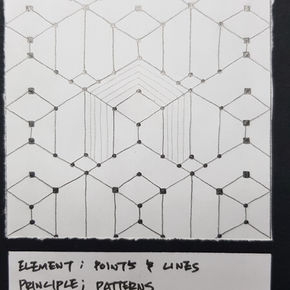 ELEMENT; POINTS & LINES
PRINCIPLE; PATTERNS